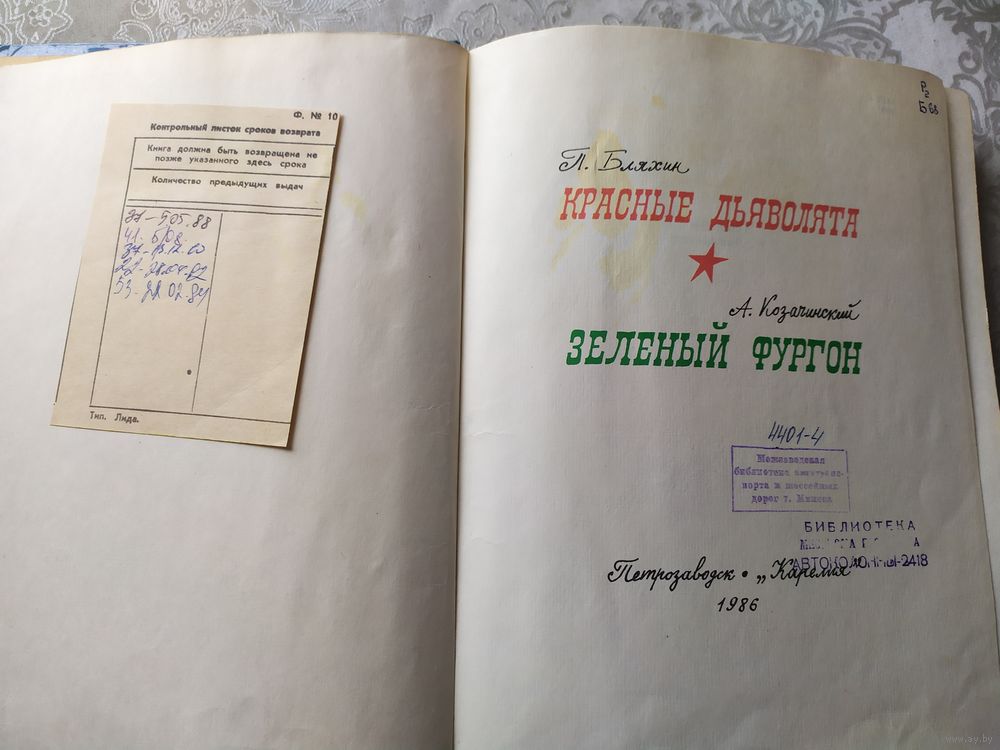 Ф. № 10
Контрольный листок сроков возврата
Книга должна быть возвращена не
позже указанного здесь срока
Количество предыдущих выдач
Тип. Лида.
Р2
Б 68
П. Бляхин
КРАСНЫЕ ДЬЯВОЛЯТА
А. Козачинский
ЗЕЛЕНЫЙ ФУРГОН
4401-4
Межзаводская
библиотека
порта и шоссейных
дорог г. Минска
БИБЛИОТЕКА
АВТОКОЛОННЫ-2418
Петрозаводск • „Карелия"
1986
www.ay.by